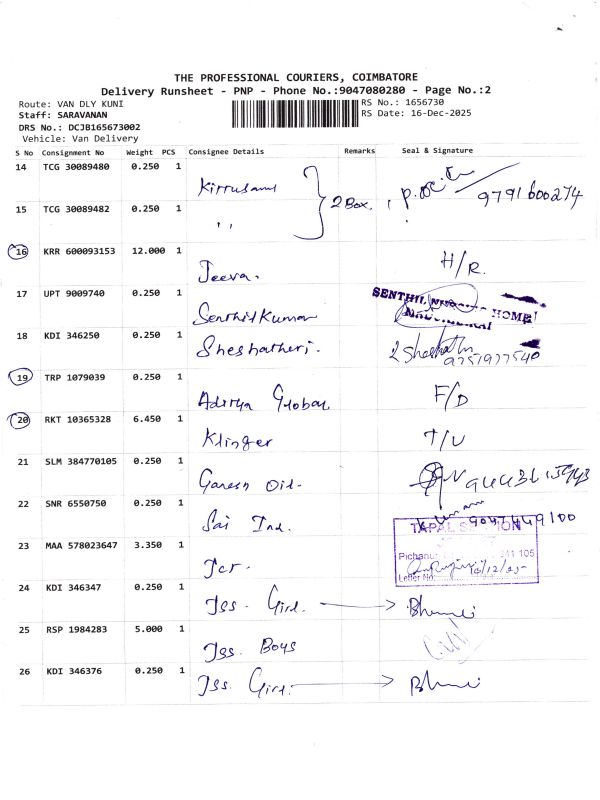 THE PROFESSIONAL COURIERS, COIMBATORE
Delivery Runsheet - PNP - Phone No.:9047080280 - Page No.:2
Route: VAN DLY KUNI
RS No.: 1656730
Staff: SARAVANAN
RS Date: 16-Dec-2025
DRS No.: DCJB165673002
Vehicle: Van Delivery
S No Consignment No Weight PCS Consignee Details Remarks Seal & Signature
14 TCG 30089480 0.250 1 Kirrusami 2 Box. 9791600274
15 TCG 30089482 0.250 1 ,,
16 KRR 600093153 12.000 1 Jeeva. H/R.
17 UPT 9009740 0.250 1 SenthilKumar SENTHIL HOME
18 KDI 346250 0.250 1 Sheshatheri. 9751977540
19 TRP 1079039 0.250 1 Aditya Global F/D
20 RKT 10365328 6.450 1 Klinger T/U
21 SLM 384770105 0.250 1 Ganesh Oil.
22 SNR 6550750 0.250 1 Sai Ind.
TAPAL SECTION
23 MAA 578023647 3.350 1 Jcr. 641 105
16/12/25
Letter No:
24 KDI 346347 0.250 1 Jss. Girl.
25 RSP 1984283 5.000 1 Jss. Boys
26 KDI 346376 0.250 1 Jss. Girl.